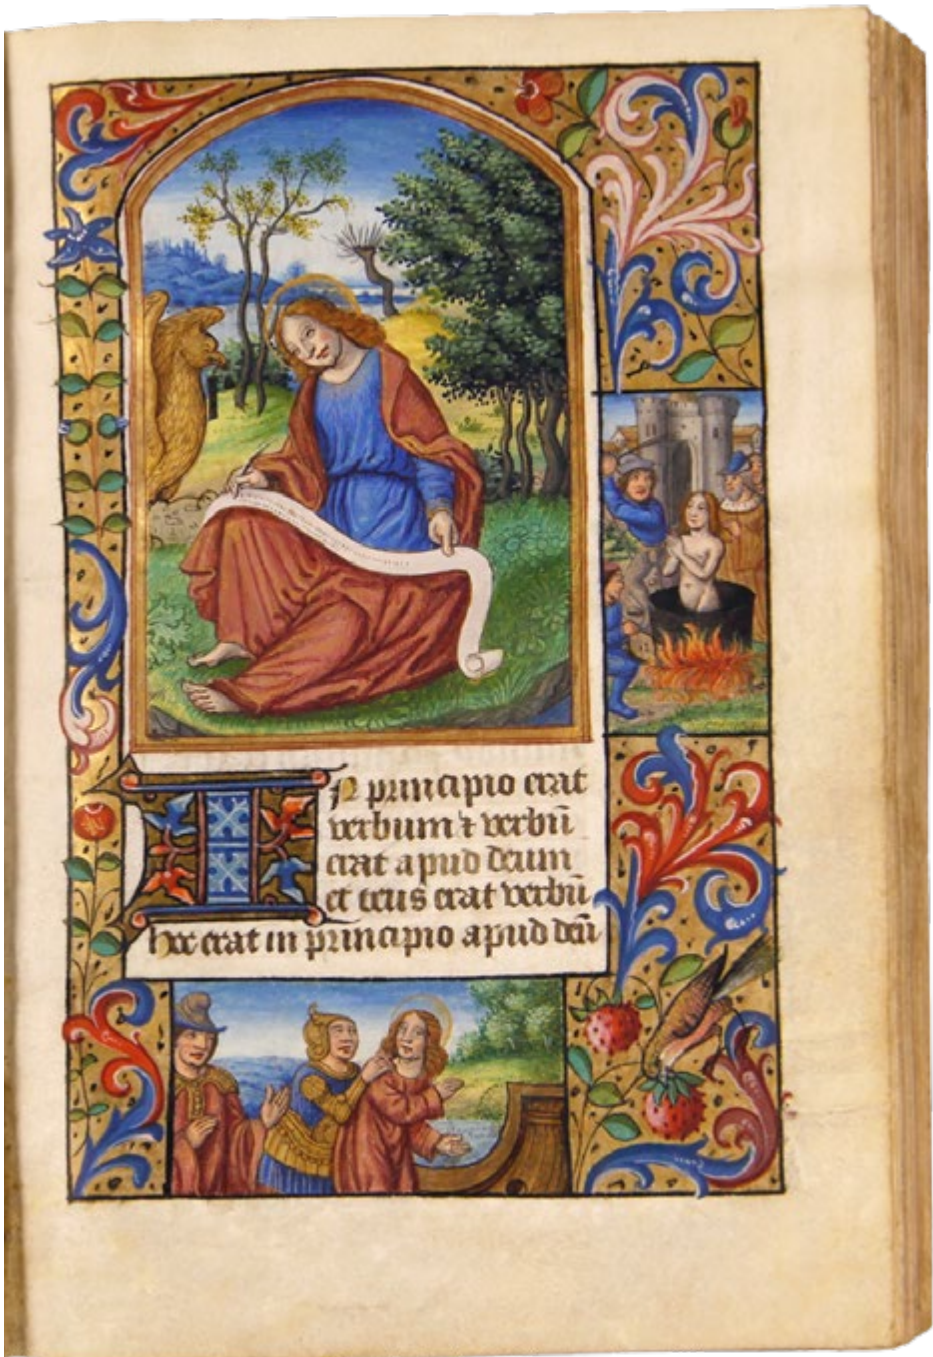 IN principio erat
verbum ⁊ verbū
erat apud deum
et deus erat verbū
hoc erat in principio apud deū